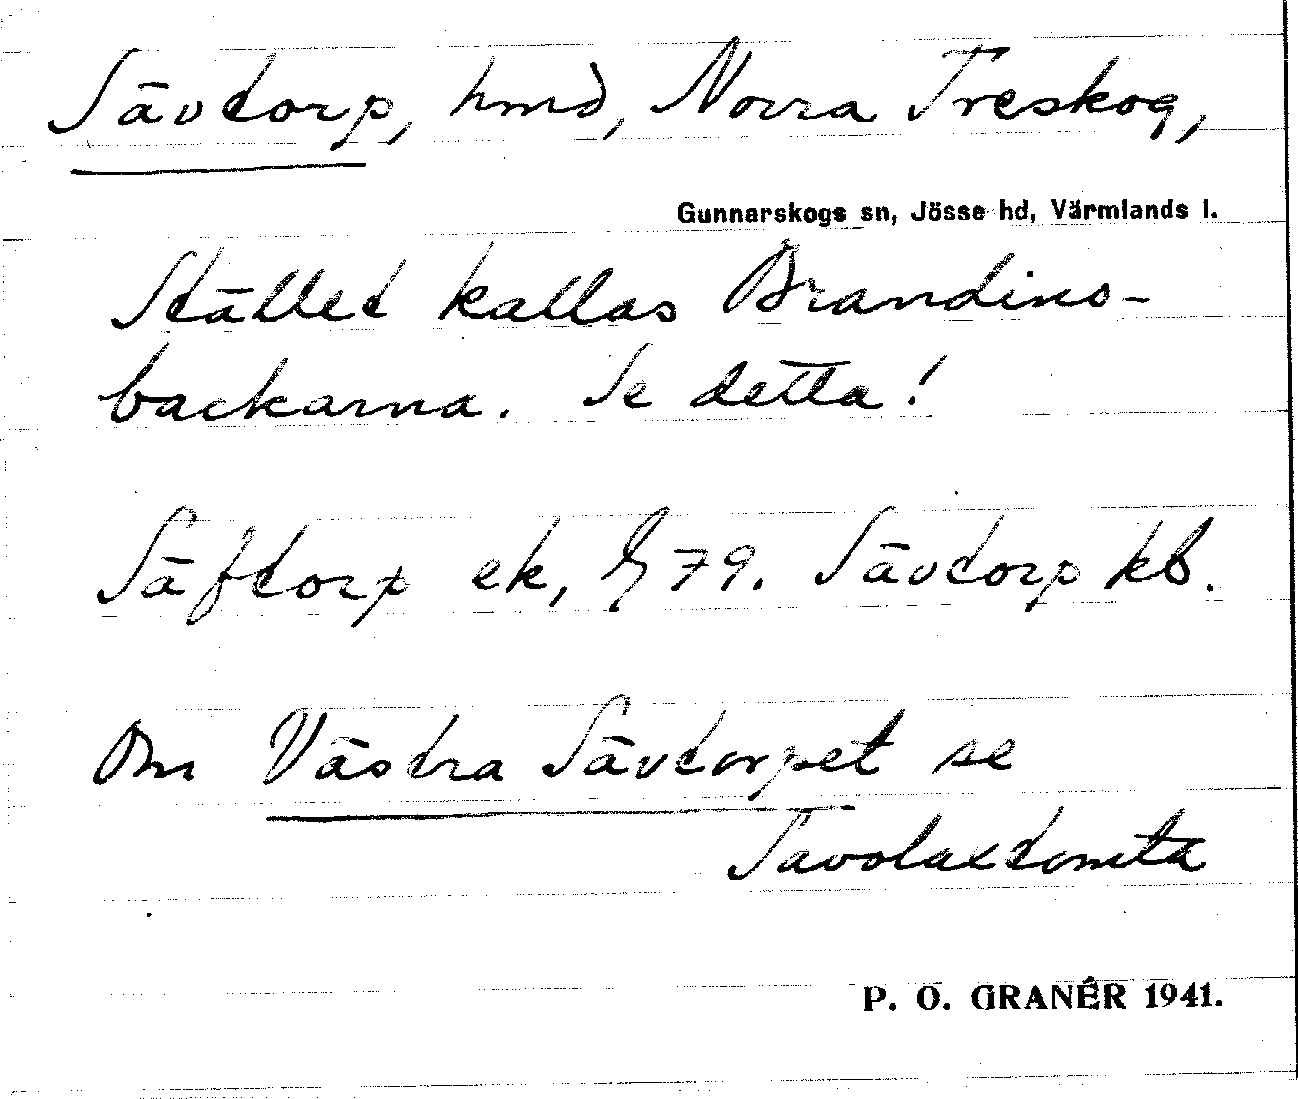 Sävtorp, hmd, Norra Treskog,
Gunnarskogs sn, Jösse hd, Värmlands l.
Stället kallas Brandins-
backarna. Se detta!
Säftorp ek, 79. Sävtorp kb.
Om Västra Sävtorpet se
Tavolaxtomta
P. O. GRANÉR 1941.